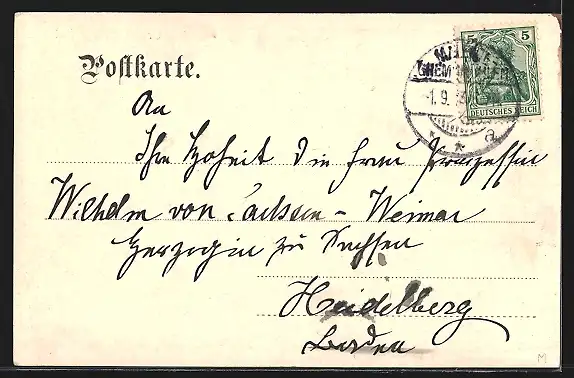 Postkarte.
5 5
CHEM
-1.9.
DEUTSCHES REICH
* * a
An
Ihre Hoheit die Frau Prinzessin
Wilhelm von Sachsen - Weimar
Herzogin zu Sachsen
Heidelberg
Baden
M